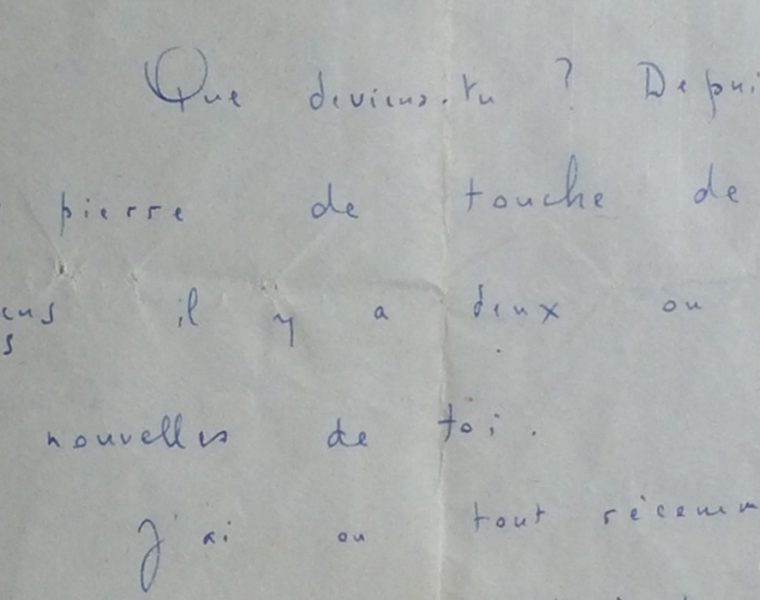 Que deviens-tu ? Depui
pierre de touche de
ens il y a deux ou
s
nouvelles de toi.
J'ai eu tout récemm